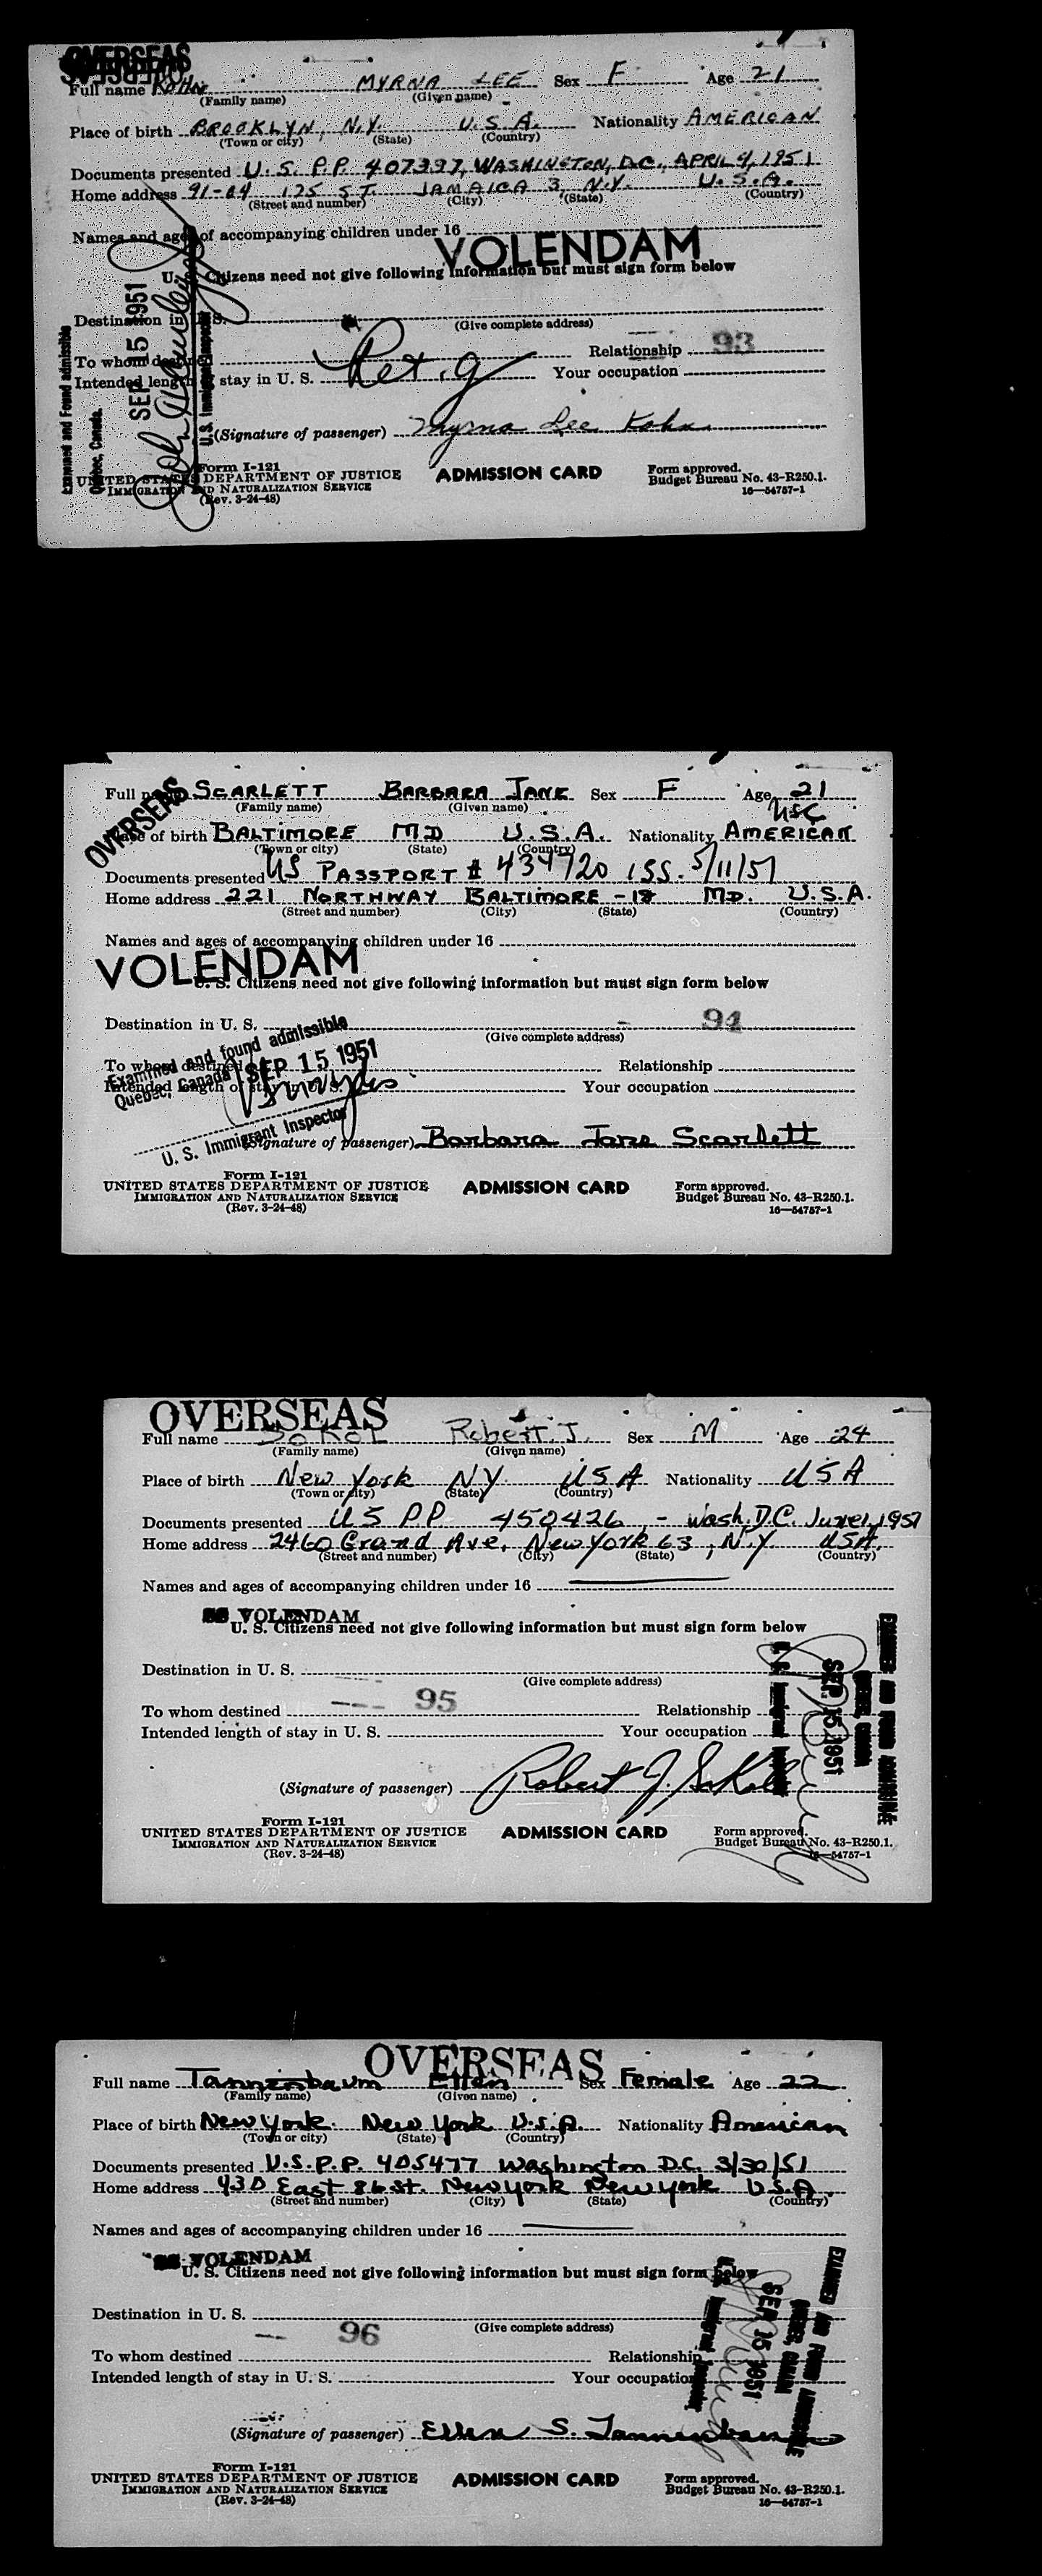 OVERSEAS
Full name KOHN MYRNA LEE Sex F Age 21
(Family name) (Given name)
Place of birth BROOKLYN, N.Y. U.S.A. Nationality AMERICAN
(Town or city) (State) (Country)
Documents presented U.S. P.P. 407397, WASHINGTON, D.C., APRIL 4, 1951
Home address 91-04 125 ST. JAMAICA 3, N.Y. U.S.A.
(Street and number) (City) (State) (Country)
Names and ages of accompanying children under 16
VOLENDAM
U. S. Citizens need not give following information but must sign form below
Destination in U.S.
(Give complete address)
To whom destined Relationship 93
Intended length of stay in U. S. Ret.g Your occupation
(Signature of passenger) Myrna Lee Kohn
Examined and Found admissible
Quebec, Canada.
SEP 15 1951
U.S. Immigrant Inspector
Form I-121
UNITED STATES DEPARTMENT OF JUSTICE ADMISSION CARD Form approved.
IMMIGRATION AND NATURALIZATION SERVICE Budget Bureau No. 43-R250.1.
(Rev. 3-24-48) 16—54757-1
OVERSEAS
Full name SCARLETT BARBARA JANE Sex F Age 21
(Family name) (Given name)
USC
Place of birth BALTIMORE MD U.S.A. Nationality AMERICAN
(Town or city) (State) (Country)
Documents presented US PASSPORT # 434720 ISS. 5/11/51
Home address 221 NORTHWAY BALTIMORE - 18 MD. U.S.A.
(Street and number) (City) (State) (Country)
Names and ages of accompanying children under 16
VOLENDAM
U. S. Citizens need not give following information but must sign form below
Destination in U. S. 94
(Give complete address)
To whom destined Relationship
Intended length of stay in U. S. Your occupation
Examined and found admissible
Quebec, Canada SEP 15 1951
U. S. Immigrant Inspector
(Signature of passenger) Barbara Jane Scarlett
Form I-121
UNITED STATES DEPARTMENT OF JUSTICE ADMISSION CARD Form approved.
IMMIGRATION AND NATURALIZATION SERVICE Budget Bureau No. 43-R250.1.
(Rev. 3-24-48) 16—54757-1
OVERSEAS
Full name SOKOL Robert J. Sex M Age 24
(Family name) (Given name)
Place of birth New York NY USA Nationality USA
(Town or city) (State) (Country)
Documents presented US P.P. 450426 - Wash. D.C. June 1, 1951
Home address 2460 Grand Ave, New York 63, N.Y. USA.
(Street and number) (City) (State) (Country)
Names and ages of accompanying children under 16
SS VOLENDAM
U. S. Citizens need not give following information but must sign form below
Destination in U. S.
(Give complete address)
95
To whom destined Relationship
Intended length of stay in U. S. Your occupation
(Signature of passenger) Robert J. Sokol
EXAMINED AND FOUND ADMISSIBLE
QUEBEC, CANADA
SEP 15 1951
U. S. Immigrant Inspector
Form I-121
UNITED STATES DEPARTMENT OF JUSTICE ADMISSION CARD Form approved.
IMMIGRATION AND NATURALIZATION SERVICE Budget Bureau No. 43-R250.1.
(Rev. 3-24-48) 16—54757-1
OVERSEAS
Full name Tannenbaum Ellen Sex Female Age 22
(Family name) (Given name)
Place of birth New York. New York U.S.A. Nationality American
(Town or city) (State) (Country)
Documents presented U.S.P.P. 405477 Washington D.C. 3/30/51
Home address 430 East 86 St. New York New York U.S.A.
(Street and number) (City) (State) (Country)
Names and ages of accompanying children under 16
SS VOLENDAM
U. S. Citizens need not give following information but must sign form below
Destination in U. S.
96 (Give complete address)
To whom destined Relationship
Intended length of stay in U. S. Your occupation
(Signature of passenger) Ellen S. Tannenbaum
EXAMINED AND FOUND ADMISSIBLE
QUEBEC, CANADA
SEP 15 1951
U. S. Immigrant Inspector
Form I-121
UNITED STATES DEPARTMENT OF JUSTICE ADMISSION CARD Form approved.
IMMIGRATION AND NATURALIZATION SERVICE Budget Bureau No. 43-R250.1.
(Rev. 3-24-48) 16—54757-1